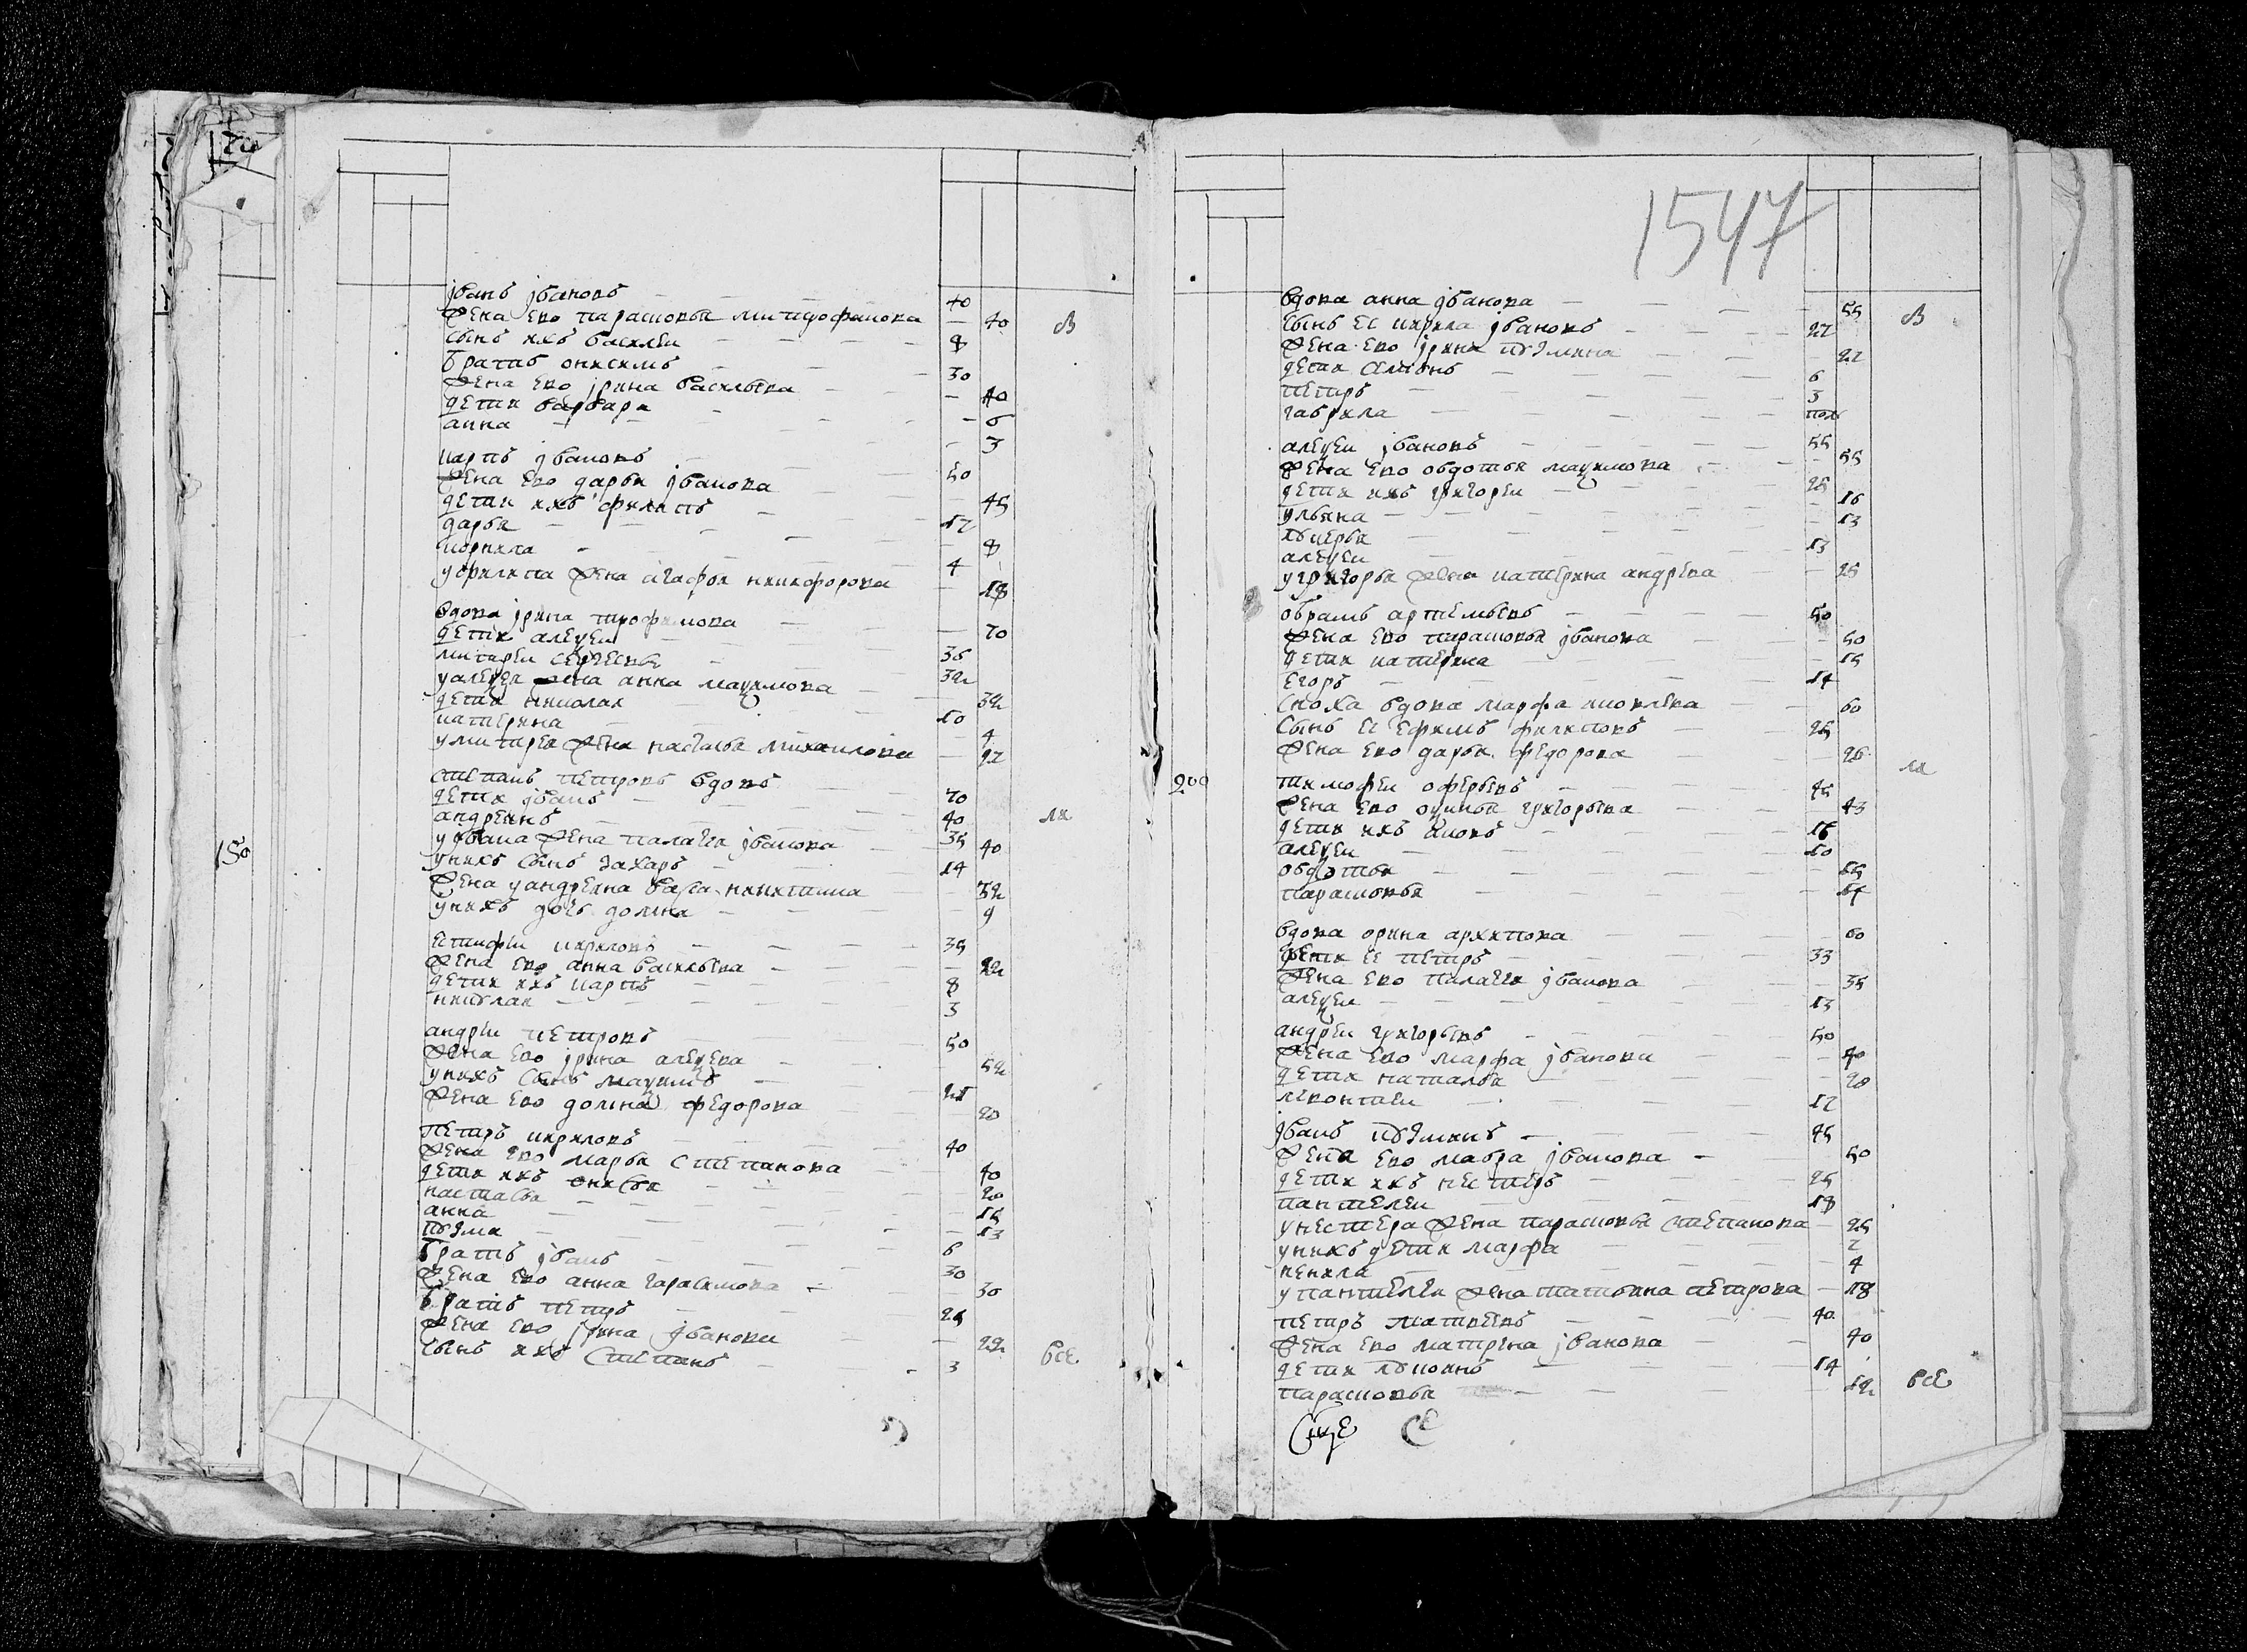 іванъ івановъ 40
жена ево парасковья митрофанова 40
сынъ ихъ василеи 8
братъ онисимъ 30
жена ево ірина васильева 40
дети варвара 6
анна 3
карпъ івановъ 50
жена ево дарья іванова 45
дети ихъ филипъ 17
дарья 8
кирила 4
у филипа жена агафья никифорова 18
вдова ірина трофимова 70
дети алеѯеи 36
митреи сергеевы 32
у алеѯея жена анна маѯимова 32
дети николаи 10
катерина 4
у митрея жена настасья михаилова 27
степанъ петровъ вдовъ 70
дети іванъ 40
андреянъ 35
у ивана жена палагея іванова 40
у нихъ сынъ захаръ 14
жена у андреяна варвара никитина 32
у нихъ дочь домна 9
естифеи кириловъ 35
жена ево анна васильева 22
дети ихъ карпъ 8
николаи 3
андреи петровъ 50
жена ево ірина алеѯеева 52
у нихъ сынъ маѯимъ 21
жена ево домна федорова 20
петръ кириловъ 40
жена ево марья степанова 40
дети ихъ онисья 20
настасья 15
анна 13
кузма 6
братъ іванъ 30
жена ево анна гарасимова 30
братъ петръ 25
жена ево ірина іванова 22
сынъ ихъ степанъ 3
в
ли
все
150
1547
вдова анна іванова 55
сынъ ее кирила івановъ 27
жена ево ірина кузмина 27
дети семионъ 6
петръ 3
гаврила пол
алеѯеи івановъ 55
жена ево овдотья маѯимова 55
дети ихъ григореи 25
ульяна 16
лукерья 13
алеѯеи 13
у григорья жена катерина андреева 25
обрамъ артемьевъ 50
жена ево парасковья іванова 50
дети катерина 15
егоръ 14
сноха вдова марфа яковлева 60
сынъ ее ефимъ филиповъ 25
жена ево дарья федорова 26
200 тимофеи оферьевъ 45
жена ево оѯинья григорьева 43
дети ихъ яковъ 16
алеѯеи 10
овдотья 15
парасковья 14
вдова орина архипова 60
дети ее петръ 33
жена ево палагея іванова 35
алеѯеи 13
андреи григорьевъ 50
жена ево марфа іванова 40
дети наталья 20
левонтеи 17
іванъ кузминъ 45
жена ево мавра іванова 50
дети ихъ нестеръ 25
пантелеи 18
у нестера жена парасковья степанова 25
у нихъ дети марфа 7
ненила 4
у пантелея жена татьяна петрова 18
петръ матвеевъ 40
жена ево матрена іванова 40
дети лукоянъ 14
парасковья 12
в
ли
все